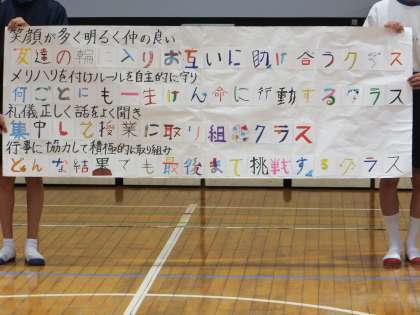 笑顔が多く明るく仲の良い
友達の輪に入りお互いに助け合うクラス
メリハリを付けルールを自主的に守り
何ごとにも一生けん命に行動するクラス
礼儀正しく話をよく聞き
集中して授業に取り組むクラス
行事に協力して積極的に取り組み
どんな結果でも最後まで挑戦するクラス